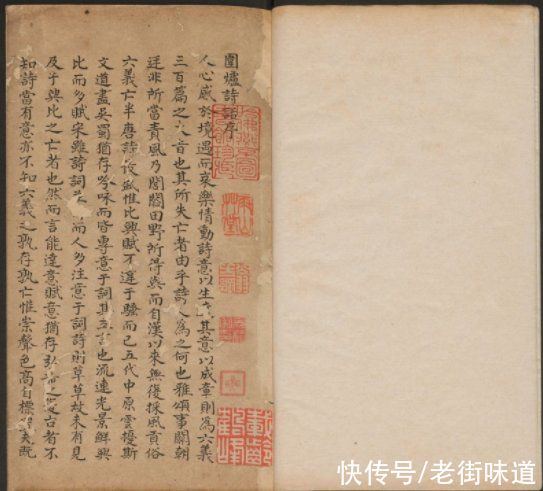 圍爐詩話序
人心感於境遇而哀樂情動詩意以生達其意以成章則為六義
三百篇之大旨也其所失亡者由乎詩人為之何也雅頌事關朝
廷非所當責風乃閭閻田野所得與而自漢以來無復採風貢俗
六義亡半唐詩後 惟比興賦不違于騷而已五代中原雲擾斯
文道盡吳蜀猶存吟咏而皆專意于詞其五 也流連光景鮮興
比而多賦宋雖詩詞 而人多注意于詞詩則草草故未有見
及于興比之亡者也然而言能達意賦意猶存弘 之 古者不
知詩當有意亦不知六義之孰存孰亡惟崇聲色高自標 夫既
快传号/老街味道